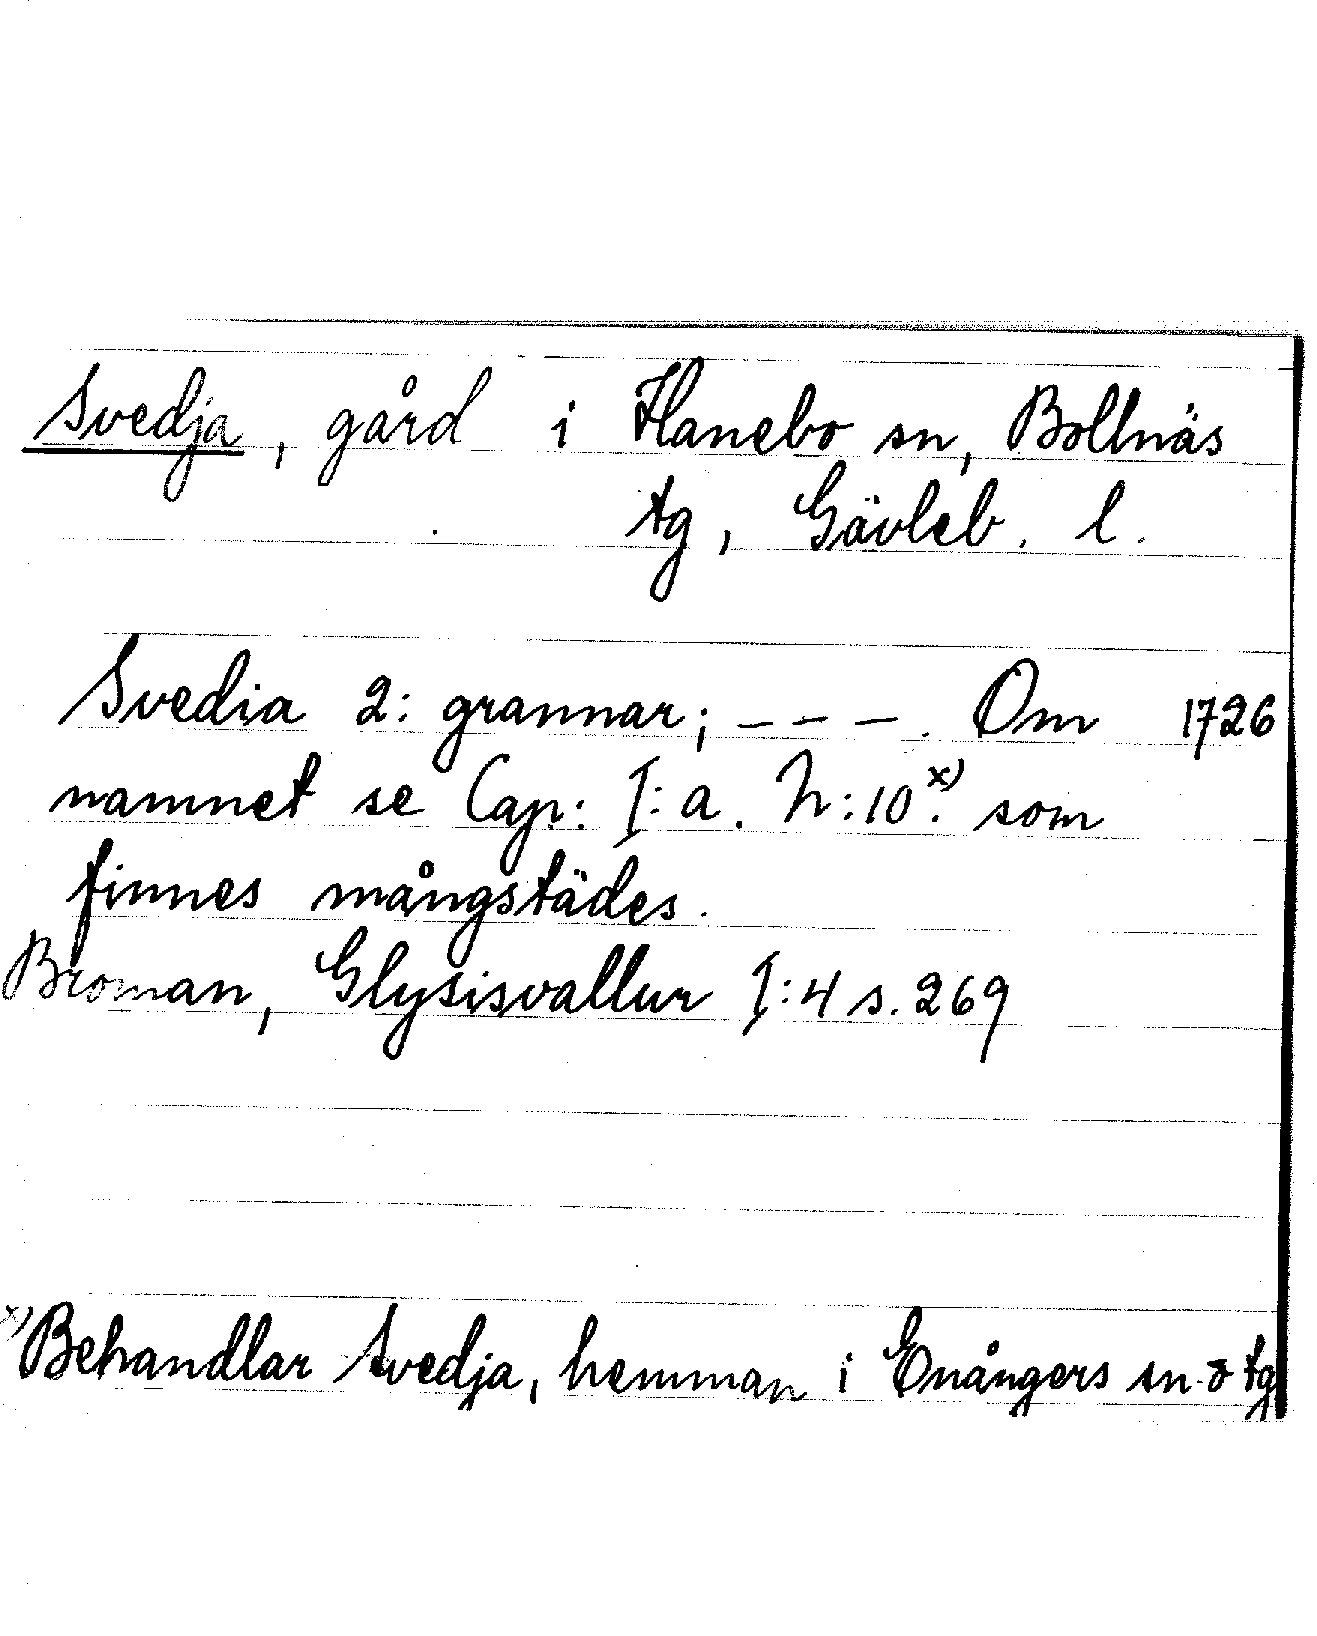 Svedja, gård i Hanebo sn, Bollnäs
tg, Gävleb. l.
Svedia 2: grannar; – – –. Om 1726
namnet se Cap: I: a. N:10.x) som
finnes mångstädes.
Broman, Glysisvallur I:4 s. 269
x) Behandlar Svedja, hemman i Enångers sn o tg